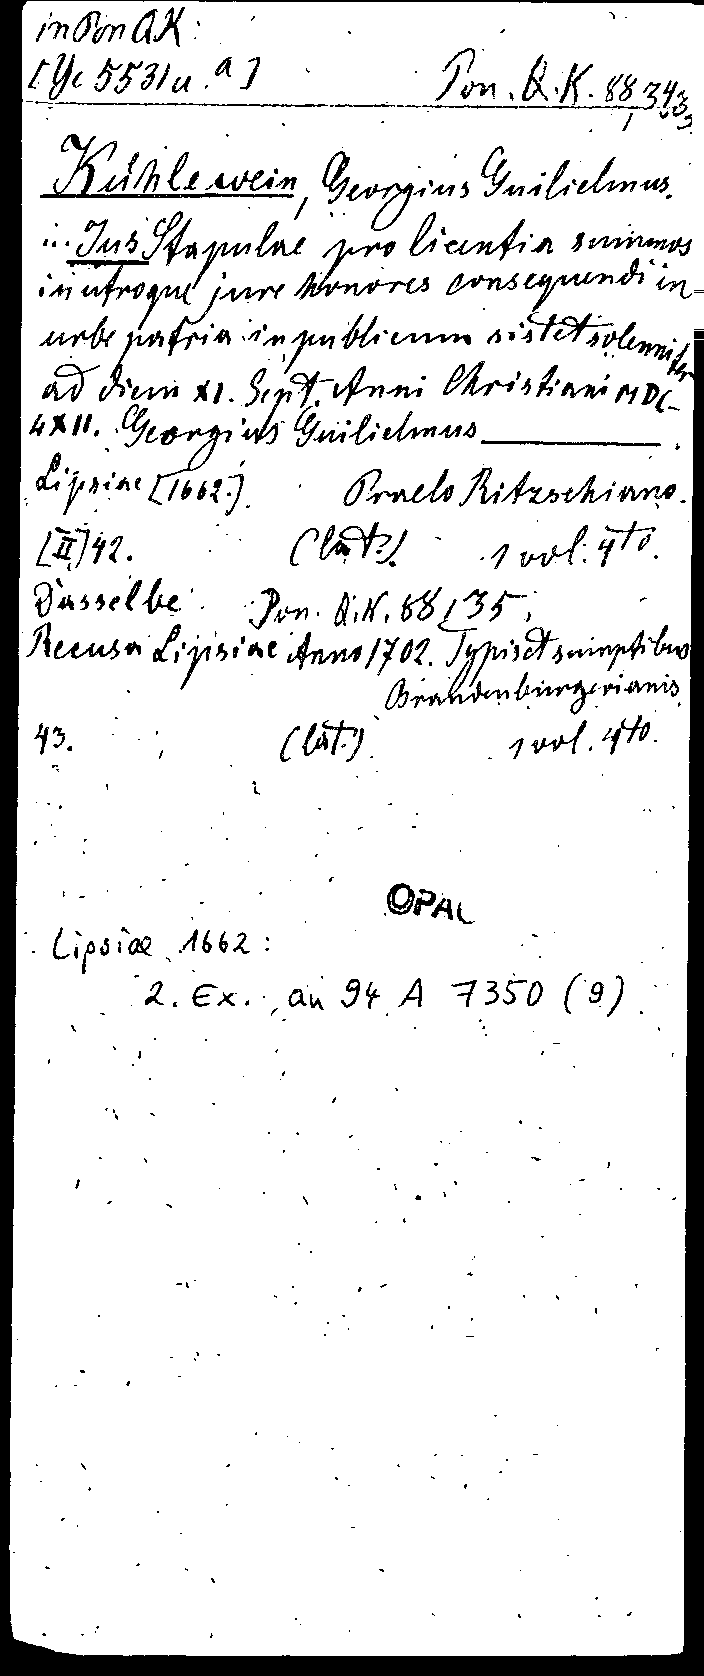 in Pon QK:
[Yc 5531 u. a]
Pon. Q.K. 88, 343,
Kühlewein, Georgius Guilielmus.
... Jus Stapulae pro licentia summos
in utroque jure honores consequendi in
urbe patria in publicum sistet solenniter
ad diem XI. Sept. Anni Christiani MDC-
LXII. Georgius Guilielmus ______.
Lipsiae [1662.] Praelo Ritzschiano.
[II] 42. (lat.) 1 vol. 4to.
Dasselbe Pon. Q.K. 88, 35,
Recusa Lipsiae Anno 1702. Typis et sumptibus
Brandenburgerianis
43. (lat.) 1 vol. 4to.
OPAC
Lipsiae 1662:
2. Ex. an 94 A 7350 (9)